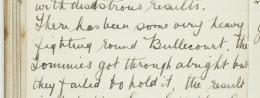 with disastrous results.
There has been some very heavy
fighting round Bullecourt, the
Tommies got through alright but
they failed to hold it, the result